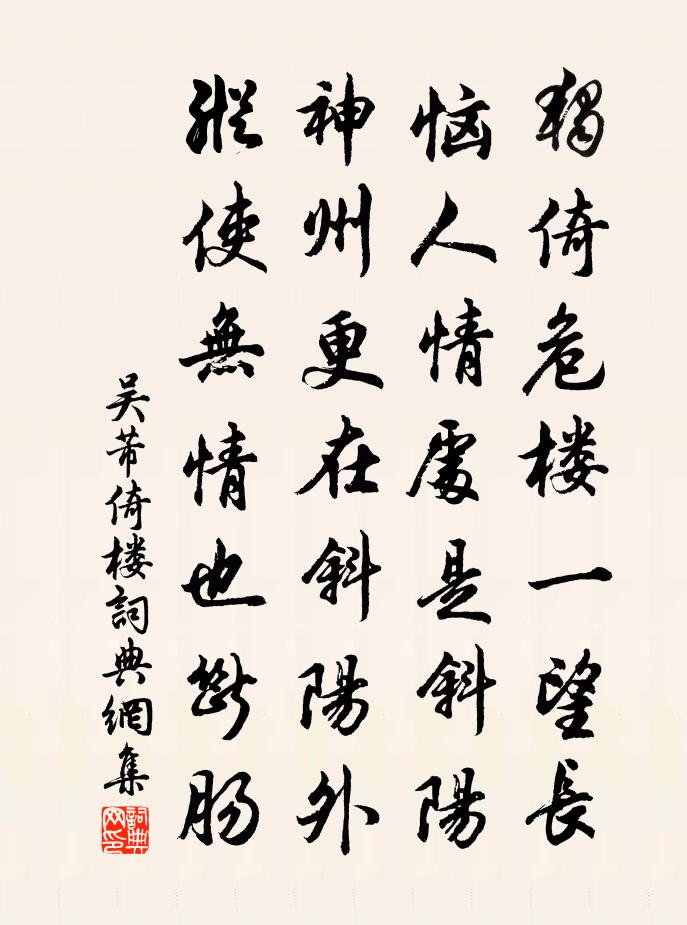 獨倚危楼一望長
惱人情處是斜陽
神州更在斜陽外
縱使無情也斷腸
吴芾倚楼詞典網集
詞典網印